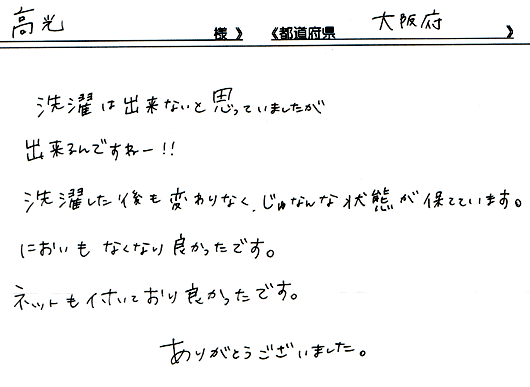 高光 様 》 《都道府県 大阪府 》
洗濯は出来ないと思っていましたが
出来るんですねー!!
洗濯した後も変わりなく、じゅなんな状態が保てています。
においもなくなり良かったです。
ネットも付いており良かったです。
ありがとうございました。